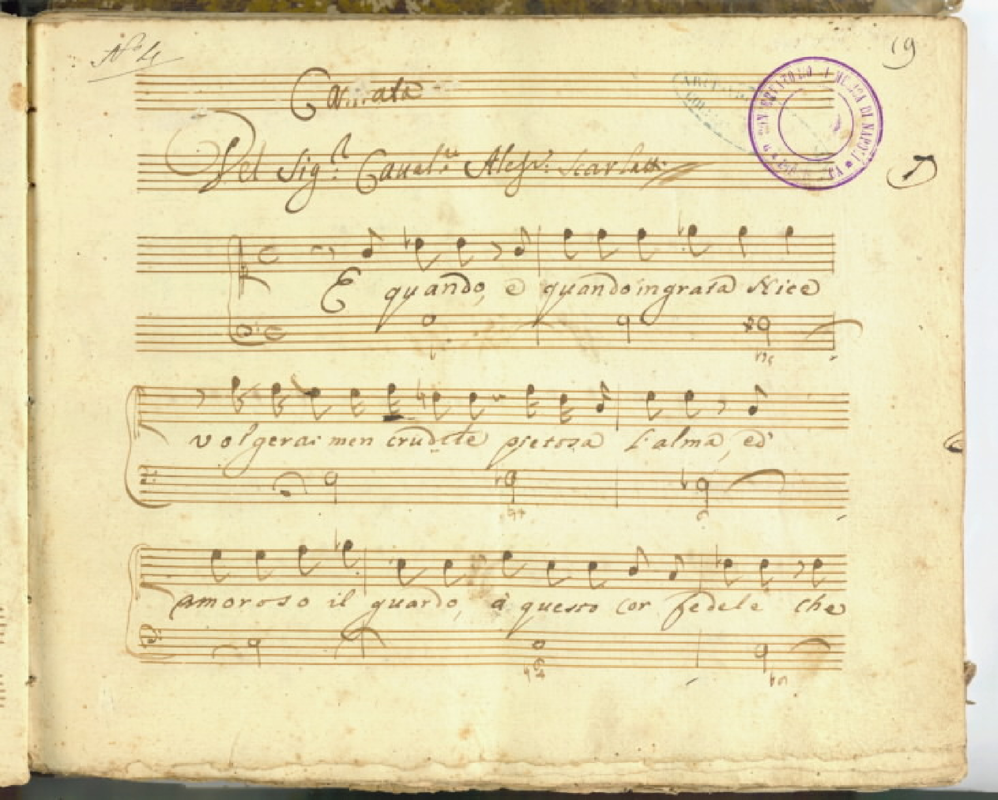 N.º 4
19
Cantata
Del Sig.r Caval.re Aless.o Scarlatti
E quando, e quando ingrata Nice
volgerai men crudele pietosa l'alma, ed'
amoroso il guardo, à questo cor fedele che